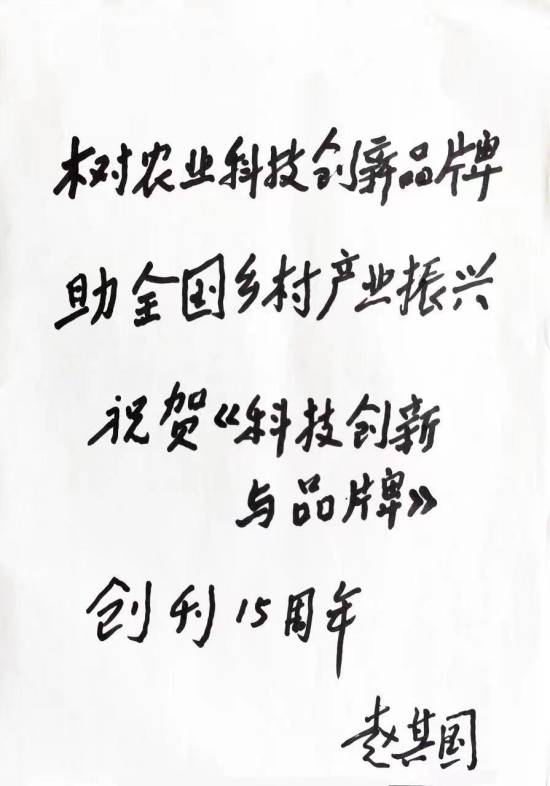 树农业科技创新品牌
助全国乡村产业振兴
祝贺《科技创新
与品牌》
创刊15周年
赵其国